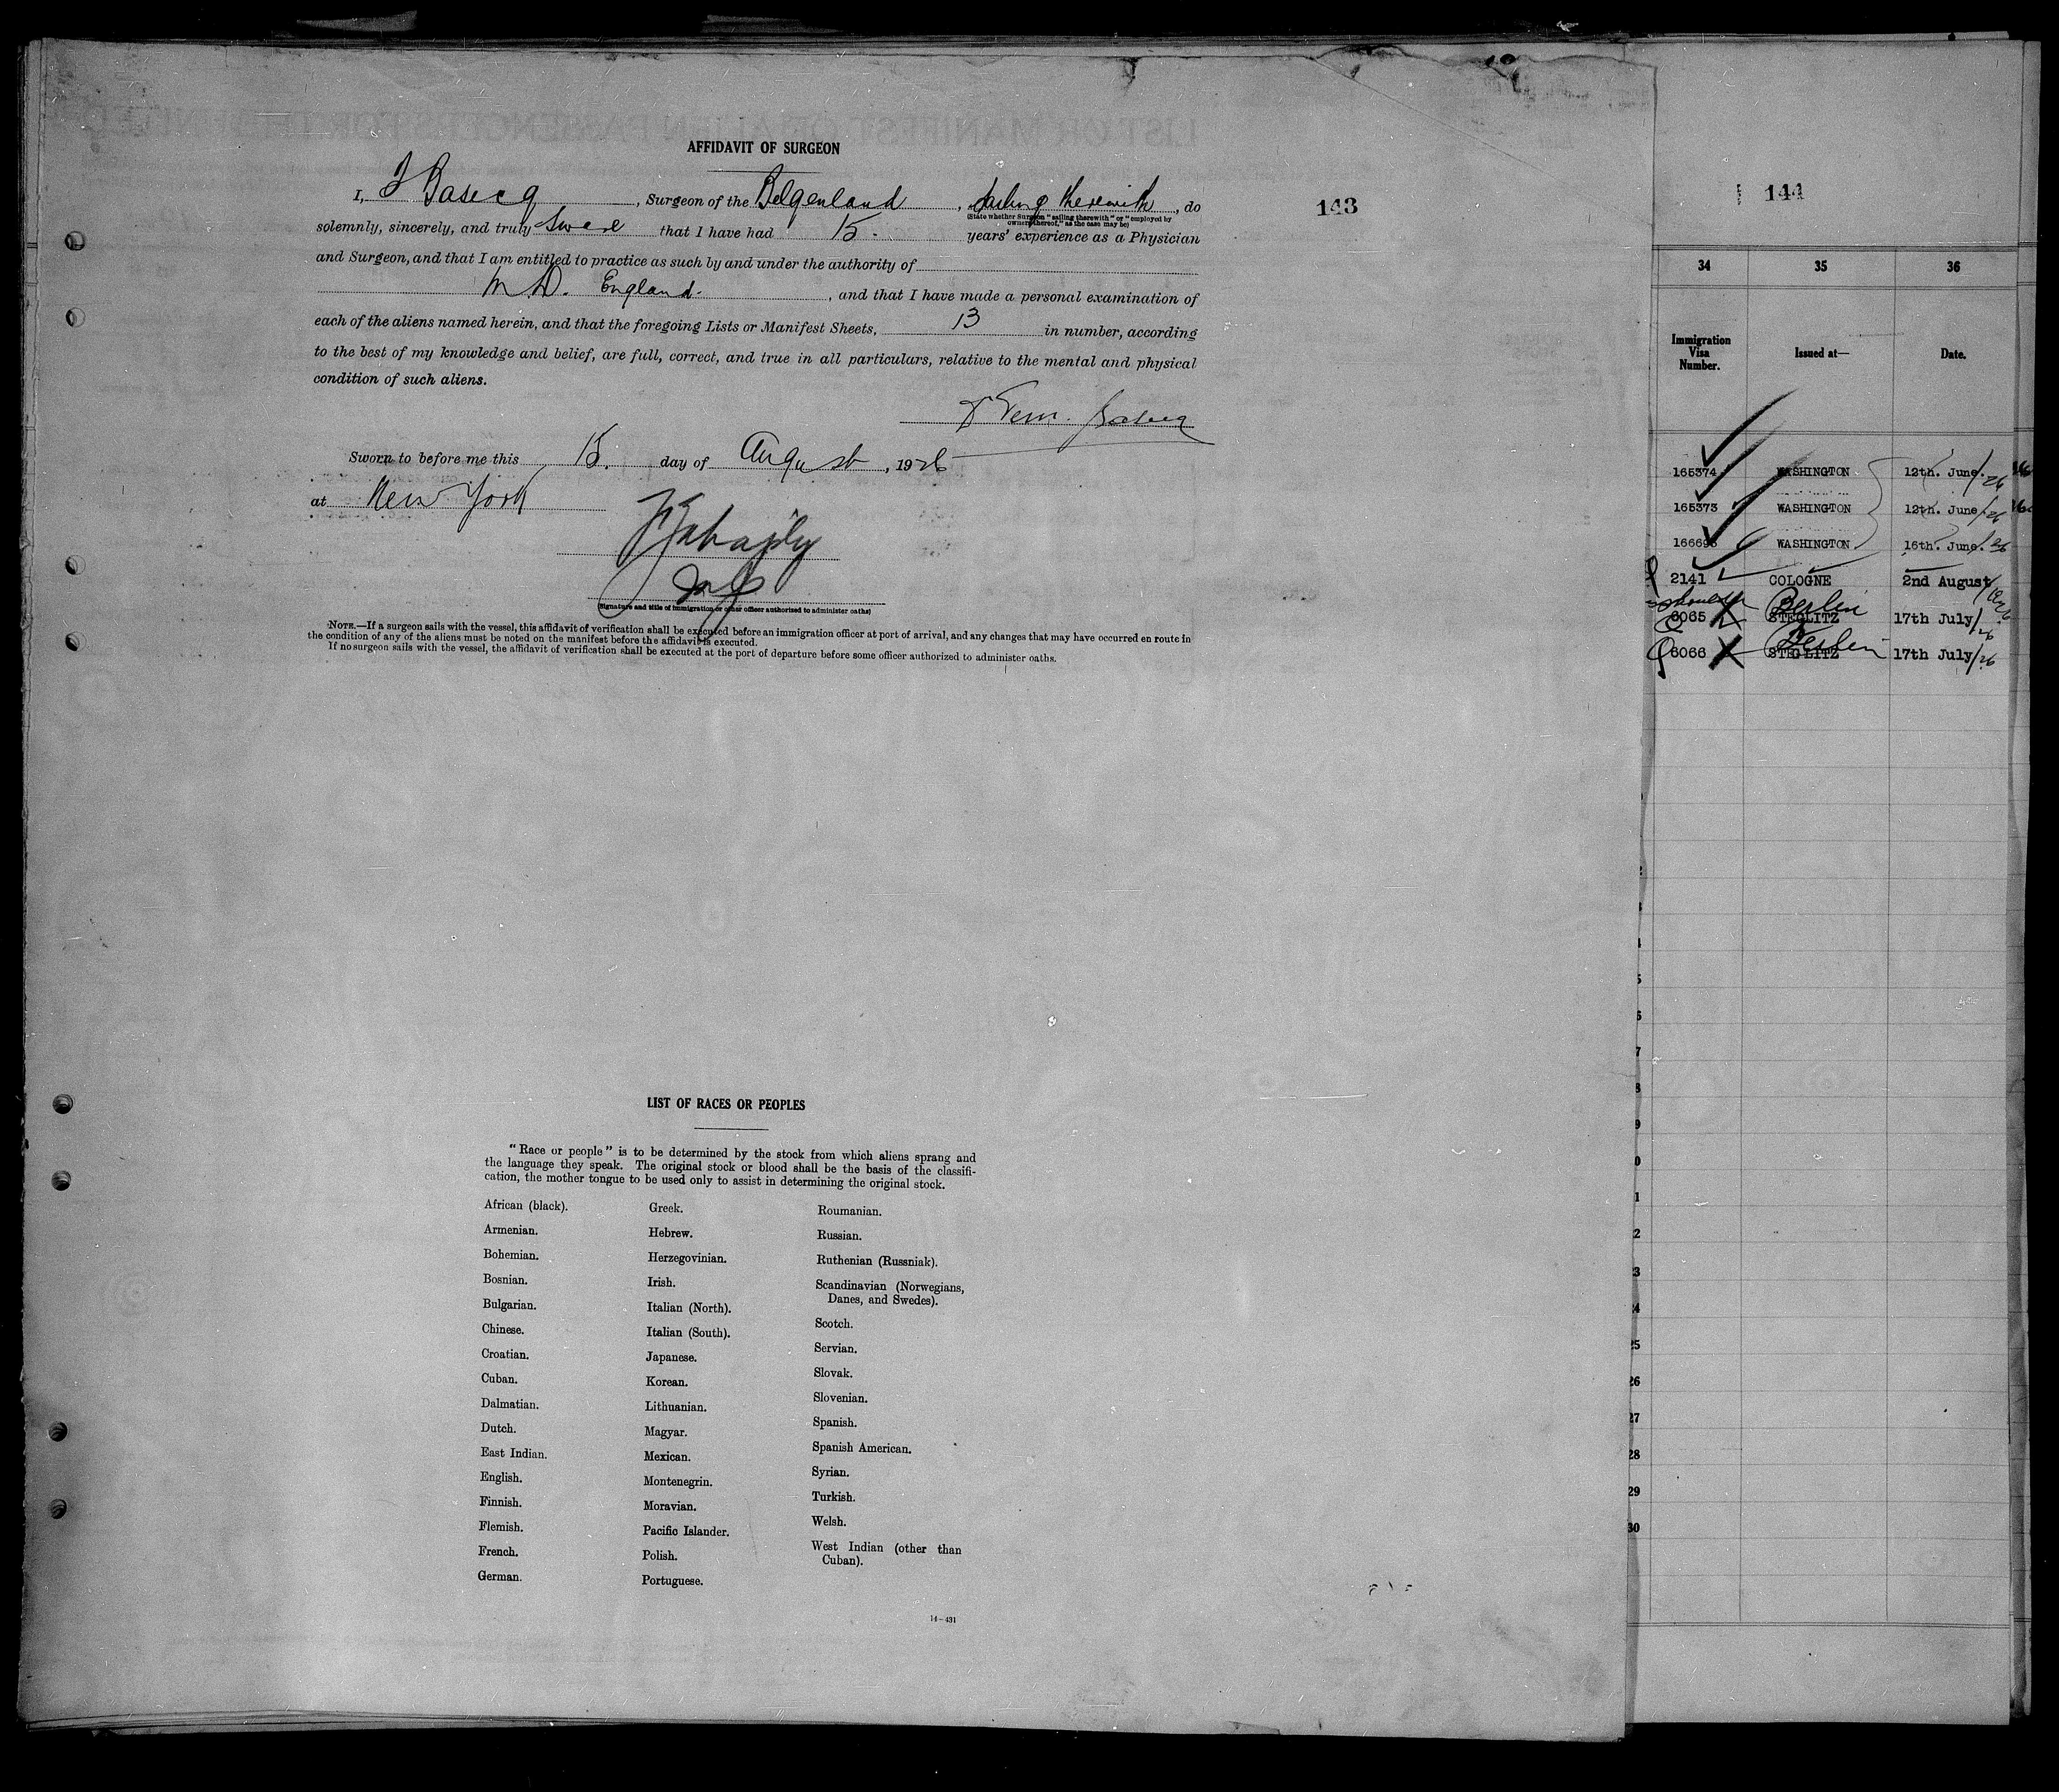 AFFIDAVIT OF SURGEON
I, Basecq, Surgeon of the Belgenland, Sailing therewith, do
(State whether Surgeon "sailing therewith" or "employed by
owners thereof," as the case may be)
solemnly, sincerely, and truly Swear that I have had 15. years' experience as a Physician
and Surgeon, and that I am entitled to practice as such by and under the authority of
M.D. England. , and that I have made a personal examination of
each of the aliens named herein, and that the foregoing Lists or Manifest Sheets, 13 in number, according
to the best of my knowledge and belief, are full, correct, and true in all particulars, relative to the mental and physical
condition of such aliens.
Sworn to before me this 15. day of August, 1926
at New York
(Signature and title of immigration or other officer authorized to administer oaths)
NOTE.—If a surgeon sails with the vessel, this affidavit of verification shall be executed before an immigration officer at port of arrival, and any changes that may have occurred en route in
the condition of any of the aliens must be noted on the manifest before the affidavit is executed.
If no surgeon sails with the vessel, the affidavit of verification shall be executed at the port of departure before some officer authorized to administer oaths.
143
LIST OF RACES OR PEOPLES
"Race or people" is to be determined by the stock from which aliens sprang and
the language they speak. The original stock or blood shall be the basis of the classifi-
cation, the mother tongue to be used only to assist in determining the original stock.
African (black).
Armenian.
Bohemian.
Bosnian.
Bulgarian.
Chinese.
Croatian.
Cuban.
Dalmatian.
Dutch.
East Indian.
English.
Finnish.
Flemish.
French.
German.
Greek.
Hebrew.
Herzegovinian.
Irish.
Italian (North).
Italian (South).
Japanese.
Korean.
Lithuanian.
Magyar.
Mexican.
Montenegrin.
Moravian.
Pacific Islander.
Polish.
Portuguese.
Roumanian.
Russian.
Ruthenian (Russniak).
Scandinavian (Norwegians,
Danes, and Swedes).
Scotch.
Servian.
Slovak.
Slovenian.
Spanish.
Spanish American.
Syrian.
Turkish.
Welsh.
West Indian (other than
Cuban).
14-431
144
34 35 36
Immigration
Visa
Number.
Issued at—
Date.
165374 WASHINGTON 12th. June. /26
165373 WASHINGTON 12th. June /26
16669 WASHINGTON 16th. June. /26
2141 COLOGNE 2nd August /1926
Berlin
6065 STEGLITZ 17th July /26
Berlin
6066 STEGLITZ 17th July /26
25
26
27
28
29
30